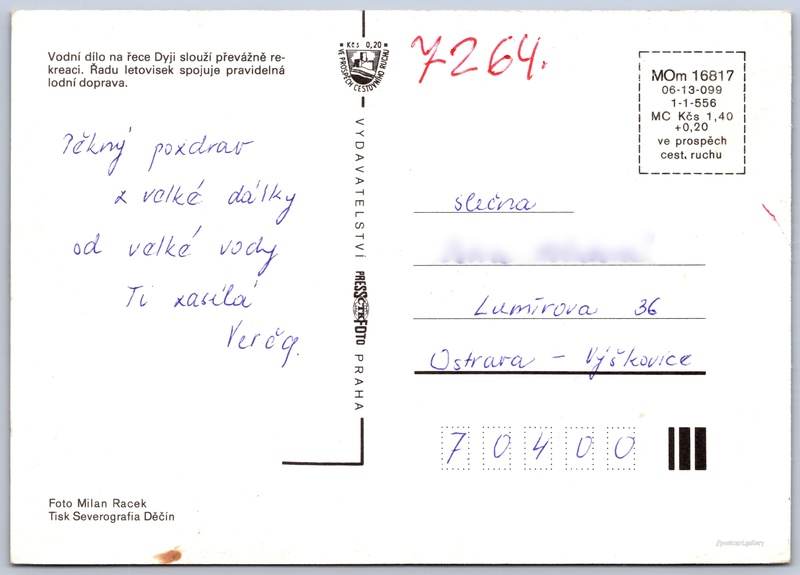 Vodní dílo na řece Dyji slouží převážně re-
kreaci. Řadu letovisek spojuje pravidelná
lodní doprava.
Kčs 0,20
VE PROSPĚCH CESTOVNÍHO RUCHU
7264.
MOm 16817
06-13-099
1-1-556
MC Kčs 1,40
+0,20
ve prospěch
cest. ruchu
Pěkný pozdrav
z velké dálky
od velké vody
Ti zasílá
Verča.
VYDAVATELSTVÍ
PRESSFOTO
ČTK
PRAHA
slečna
Lumírova 36
Ostrava - Výškovice
70400
Foto Milan Racek
Tisk Severografia Děčín
//postcart.gallery